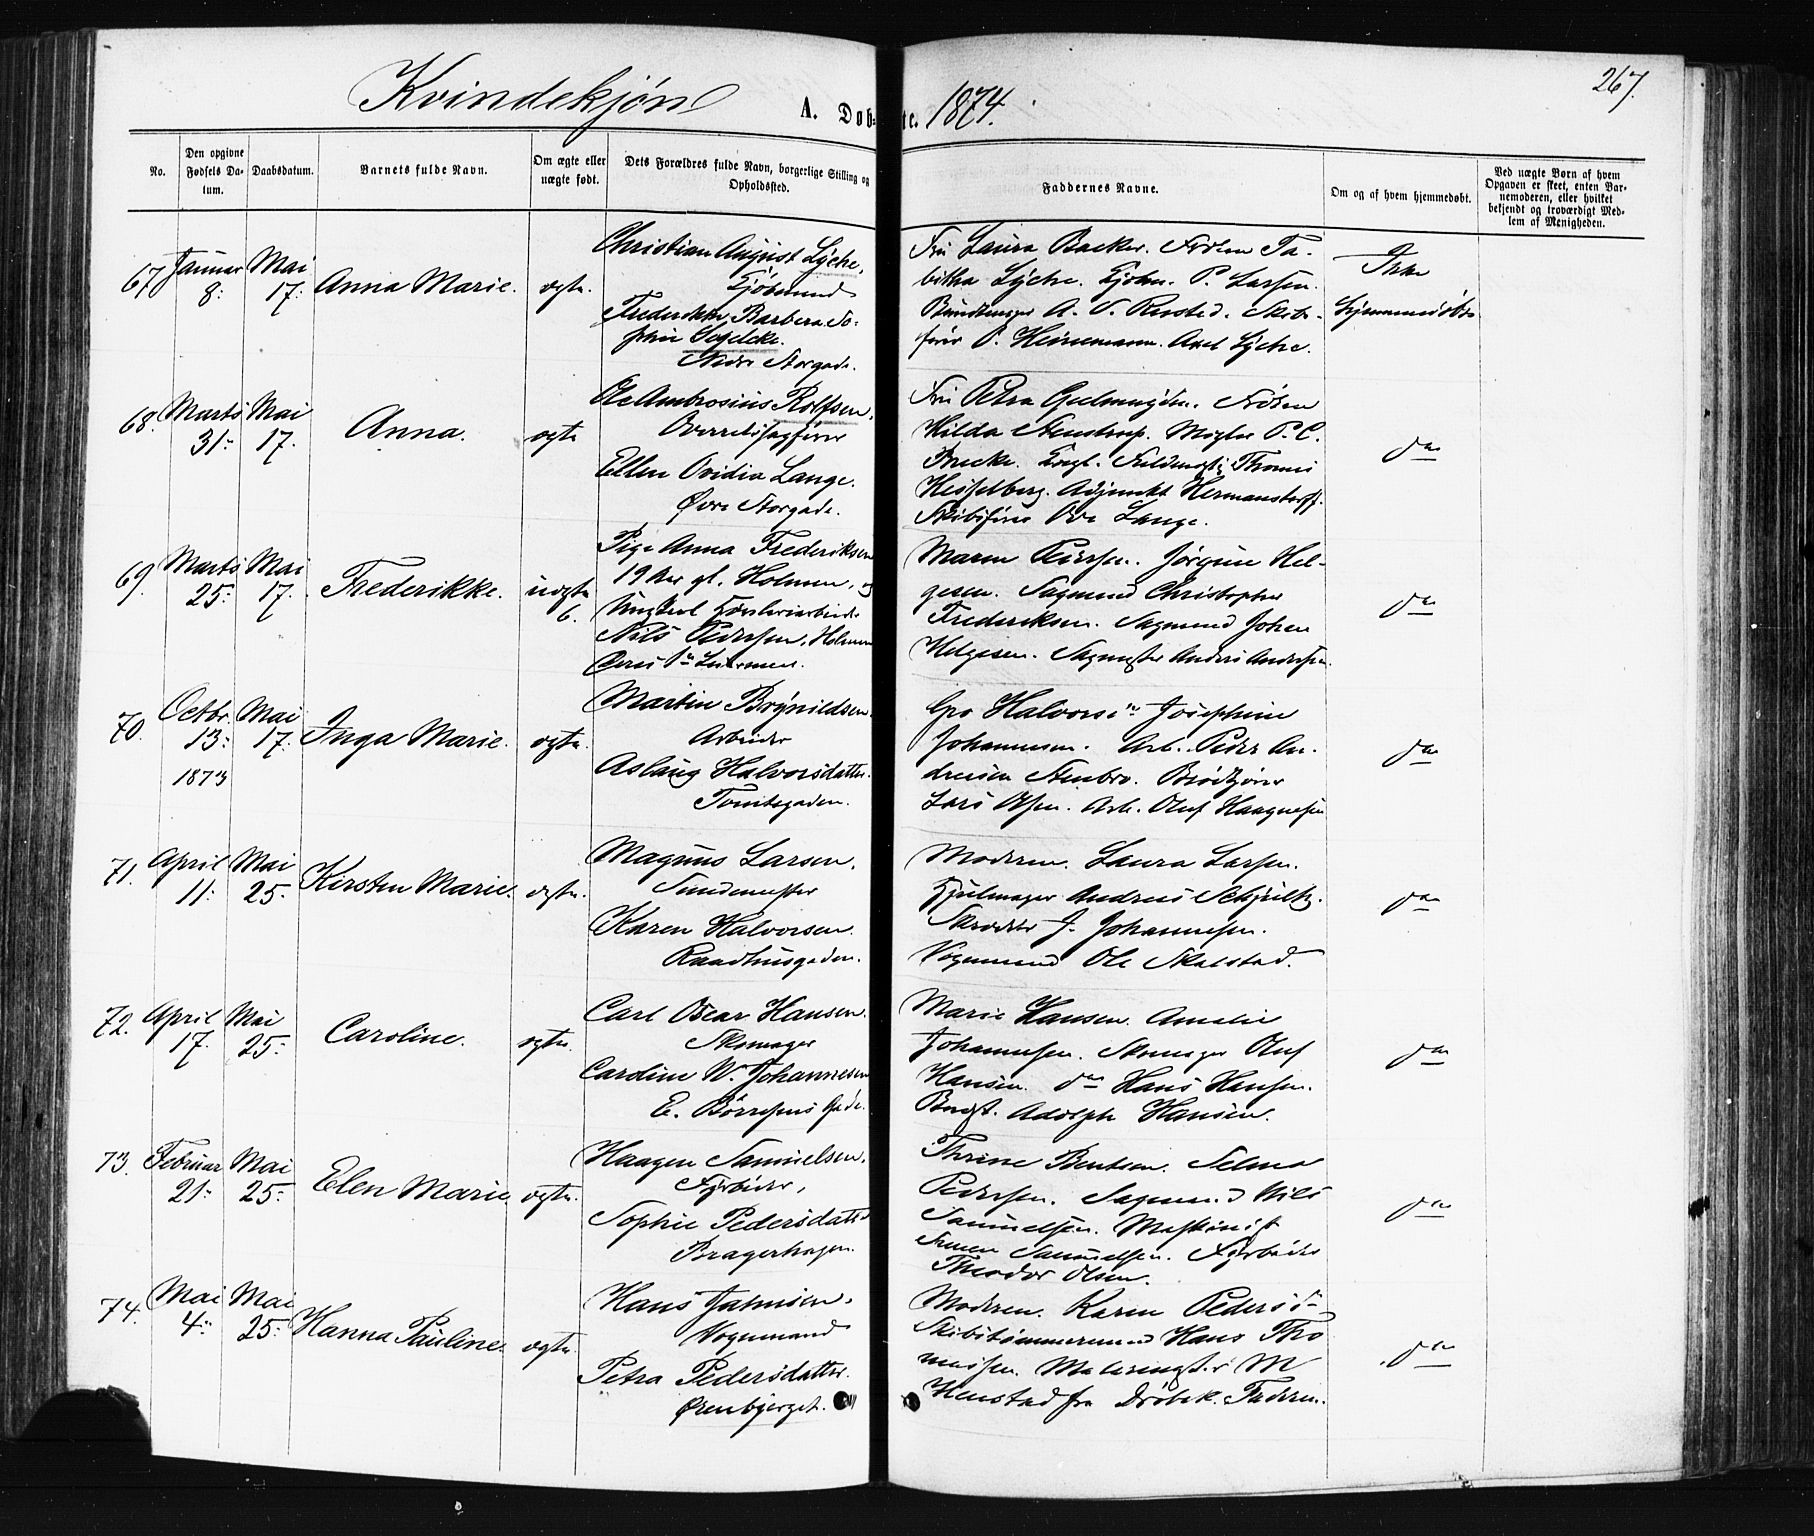 267.
Kvindekjøn
A. Døb- te. 1874.
No.
Den opgivne Fødsels Da-
tum.
Daabsdatum.
Barnets fulde Navn.
Om ægte eller
uægte født.
Dets Forældres fulde Navn, borgerlige Stilling og
Opholdssted.
Faddernes Navne.
Om og af hvem hjemmedøbt.
Ved uægte Børn af hvem
Opgaven er skeet, enten Bar-
nemoderen, eller hvilket
bekjendt og troværdigt Med-
lem af Menigheden.
67. Januar 8. Mai 17. Anna Marie. ægte.
Christian August Lyche,
Kjøbmand
Frederikke Barbera So-
phie
Nedre Storgade.
Fru Laura Backer. Frøken Ta-
bitha Lyche. Kjøbm. P. Larsen.
A. O. Skibs-
fører P. Heinemann. Axel Lyche.
Ikke
hjemmedøbt
68. Marts 31. Mai 17. Anna. ægte
Ole Ambrosius Rolfsen,
Overretssagfører
Ellen Ovidia Lange.
Øvre Storgade.
Fru Petra Gulmuyden. Frøken
Hilda Stenstrup. Mægler P. C.
Brecke. Fuldmægt. Thomas
Hesselberg. Adjunkt Hermanstorff.
Skibsfører Ove Lange.
do
69. Marts 25. Mai 17. Frederikke. uægte 6.
Pige Anna Frederiksen
19 Aar gl. Holmen, og
Ungkarl
Nils Pedersen, Holmen
Maren Pedersen. Jørgine Hel-
gesen. Sagmand Christopher
Frederiksen. Sagmand Johan
Helgesen. Sagmester Anders Andersen.
do
70. Octbr. 13. 1873 Mai 17. Inga Marie. ægte.
Martin Brynildsen.
Arbeider
Aslaug Halvorsdatter.
Tomtegaden.
Gro Halvorsen Josephine
Johannesen. Arb. Peder An-
dreasen Stenbro. Brødkjører
Lars Olsen. Arb. Oluf Haagensen
do
71. April 11. Mai 25. Kirsten Marie. ægte.
Magnus Larsen,
Smedemester
Karen Halvorsen.
Raadhusgaden.
Moderen. Laura Larsen.
Hjulmager Andreas Schjultz.
Skræder J. Johannesen.
Vognmand Ole Skalstad.
do
72. April 17. Mai 25. Caroline. ægte.
Carl Oscar Hansen.
Skomager
Caroline W. Johannesen
E. Børresens Gade.
Marie Hansen. Amalie
Johannesen. Skomager Oluf
Hansen. do Hans Hansen.
Bogst. Adolph Hansen.
do
73. Februar 21. Mai 25. Elen Marie ægte.
Haagen Samuelsen,
Fyrbøder,
Sophie Pedersdatter
Bragerhagen.
Thrine Bentsen. Selma
Pedersen. Sagmand Nils
Samuelsen. Maskinist
Samuelsen. Fyrbøder
Theodor Olsen.
do
74. Mai 4. Mai 25. Hanna Pauline. ægte.
Hans Jahnsen,
Vognmand
Petra Pedersdatter.
Ørenbjerget.
Moderen. Karen Pedersd-
Skibstømmermand Hans Tho
massen. Malersvend M
Henstad fra Drøbak. Faderen.
do